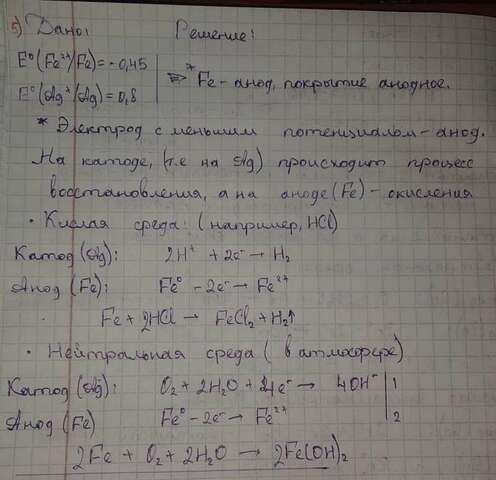 5) Дано: Решение:
E⁰(Fe²⁺/Fe) = -0,45
* Fe - анод, покрытие анодное.
E⁰(Ag⁺/Ag) = 0,8
* Электрод с меньшим потенциалом - анод.
На катоде, (т.е на Ag) происходит процесс
восстановления, а на аноде (Fe) - окисления
• Кислая среда: (например, HCl)
Катод (Ag): 2H⁺ + 2e⁻ → H₂
Анод (Fe): Fe⁰ - 2e⁻ → Fe²⁺
Fe + 2HCl → FeCl₂ + H₂↑
• Нейтральная среда (в атмосфере)
Катод (Ag): O₂ + 2H₂O + 4e⁻ → 4OH⁻ | 1
Анод (Fe) Fe⁰ - 2e⁻ → Fe²⁺ | 2
2Fe + O₂ + 2H₂O → 2Fe(OH)₂